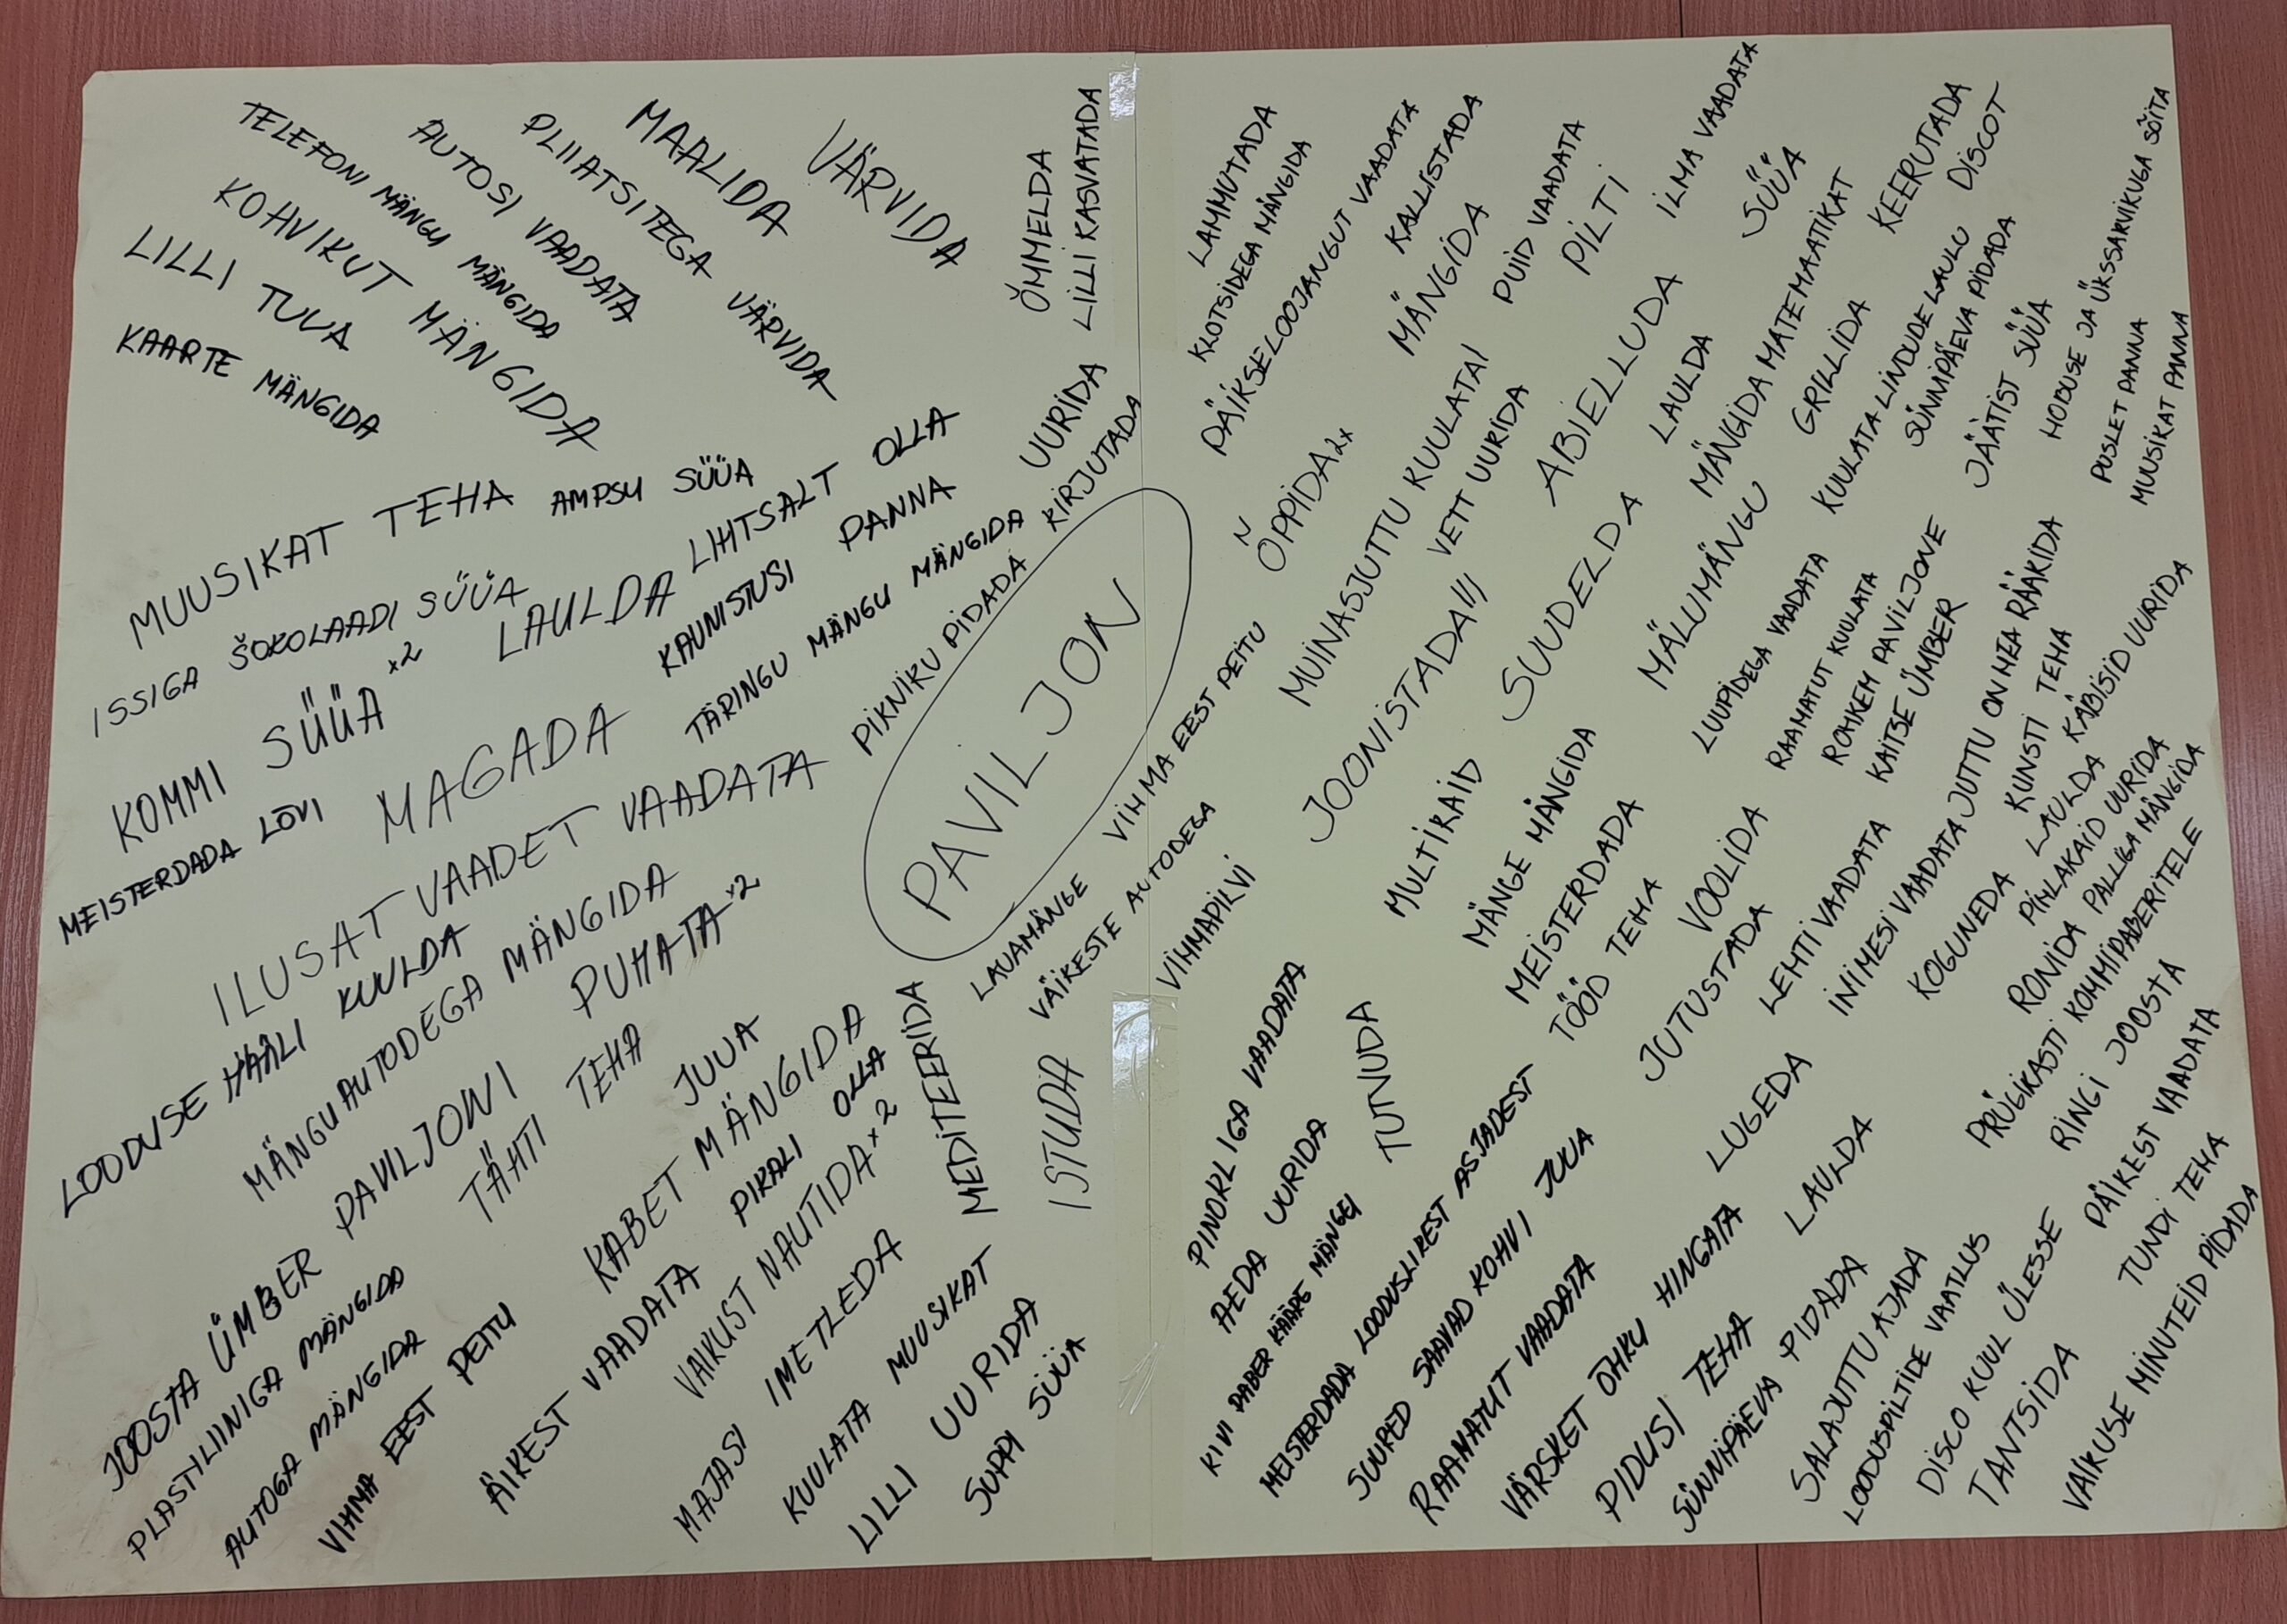 TELEFONI MÄNGU MÄNGIDA
AUTOSI VAADATA
PLIIATSITEGA VÄRVIDA
MAALIDA
VÄRVIDA
KOHVIKUT MÄNGIDA
LILLI TUUA
KAARTE MÄNGIDA
ÕMMELDA
LILLI KASVATADA
MUUSIKAT TEHA
AMPSU SÜÜA
ISSIGA ŠOKOLAADI SÜÜA
KOMMI SÜÜA x2
LAULDA
LIHTSALT OLLA
KAUNISTUSI PANNA
UURIDA
TÄRINGU MÄNGU MÄNGIDA
KIRJUTADA
PIKNIKU PIDADA
MEISTERDADA LÕVI
MAGADA
ILUSAT VAADET VAADATA
LOODUSE HÄÄLI KUULDA
MÄNGUAUTODEGA MÄNGIDA
PUHATA x2
PAVILJON
JOOSTA ÜMBER PAVILJONI
TÄHTI TEHA
JUUA
PLASTILIINIGA MÄNGIDA
AUTOGA MÄNGIDA
VIHMA EEST PEITU
KABET MÄNGIDA
ÄIKEST VAADATA
PIKALI OLLA
VAIKUST NAUTIDA x2
MAJASI IMETLEDA
MEDITEERIDA
KUULATA MUUSIKAT
LILLI UURIDA
SUPPI SÜÜA
ISTUDA
LAUAMÄNGE
VÄIKESTE AUTODEGA
VIHMA EEST PEITU
VIHMAPILVI
LAMMUTADA
KLOTSIDEGA MÄNGIDA
PÄIKSELOOJANGUT VAADATA
KALLISTADA
MÄNGIDA
PUID VAADATA
PILTI
ILMA VAADATA
SÜÜA
KEERUTADA
DISCOT
ÕPPIDA 2x
MUINASJUTTU KUULATA
VETT UURIDA
ABIELLUDA
LAULDA
MÄNGIDA MATEMAATIKAT
GRILLIDA
KUULATA LINDUDE LAULU
SÜNNIPÄEVA PIDADA
JÄÄTIST SÜÜA
HOBUSE JA ÜKSSARVIKUGA SÕITA
PUSLET PANNA
MUUSIKAT PANNA
JOONISTADA
SUUDELDA
MÄLUMÄNGU
LUUPIDEGA VAADATA
RAAMATUT KUULATA
ROHKEM PAVILJONE
KAITSE ÜMBER
MULTIKAID
MÄNGE MÄNGIDA
MEISTERDADA
TÖÖD TEHA
VOOLIDA
JUTUSTADA
LEHTI VAADATA
INIMESI VAADATA
JUTTU ON HEA RÄÄKIDA
KUNSTI TEHA
KOGUNEDA
LAULDA
KÄBISID UURIDA
PIHLAKAID UURIDA
RONIDA
PALLIGA MÄNGIDA
PRÜGIKASTI KOMMIPABERITELE
RINGI JOOSTA
PÄIKEST VAADATA
TUNDI TEHA
VAIKUSE MINUTEID PIDADA
PINOKLIGA VAADATA
AEDA UURIDA
TUTVUDA
KIVI PABER KÄÄRE MÄNGEI
MEISTERDADA LOODUSLIKEST ASJADEST
SUURED SAAVAD KOHVI JUUA
RAAMATUT VAADATA
VÄRSKET ÕHKU HINGATA
LUGEDA
LAULDA
PIDUSI TEHA
SÜNNIPÄEVA PIDADA
SALAJUTTU AJADA
LOODUSPILTIDE VAATLUS
DISCO KUUL ÜLESSE
TANTSIDA